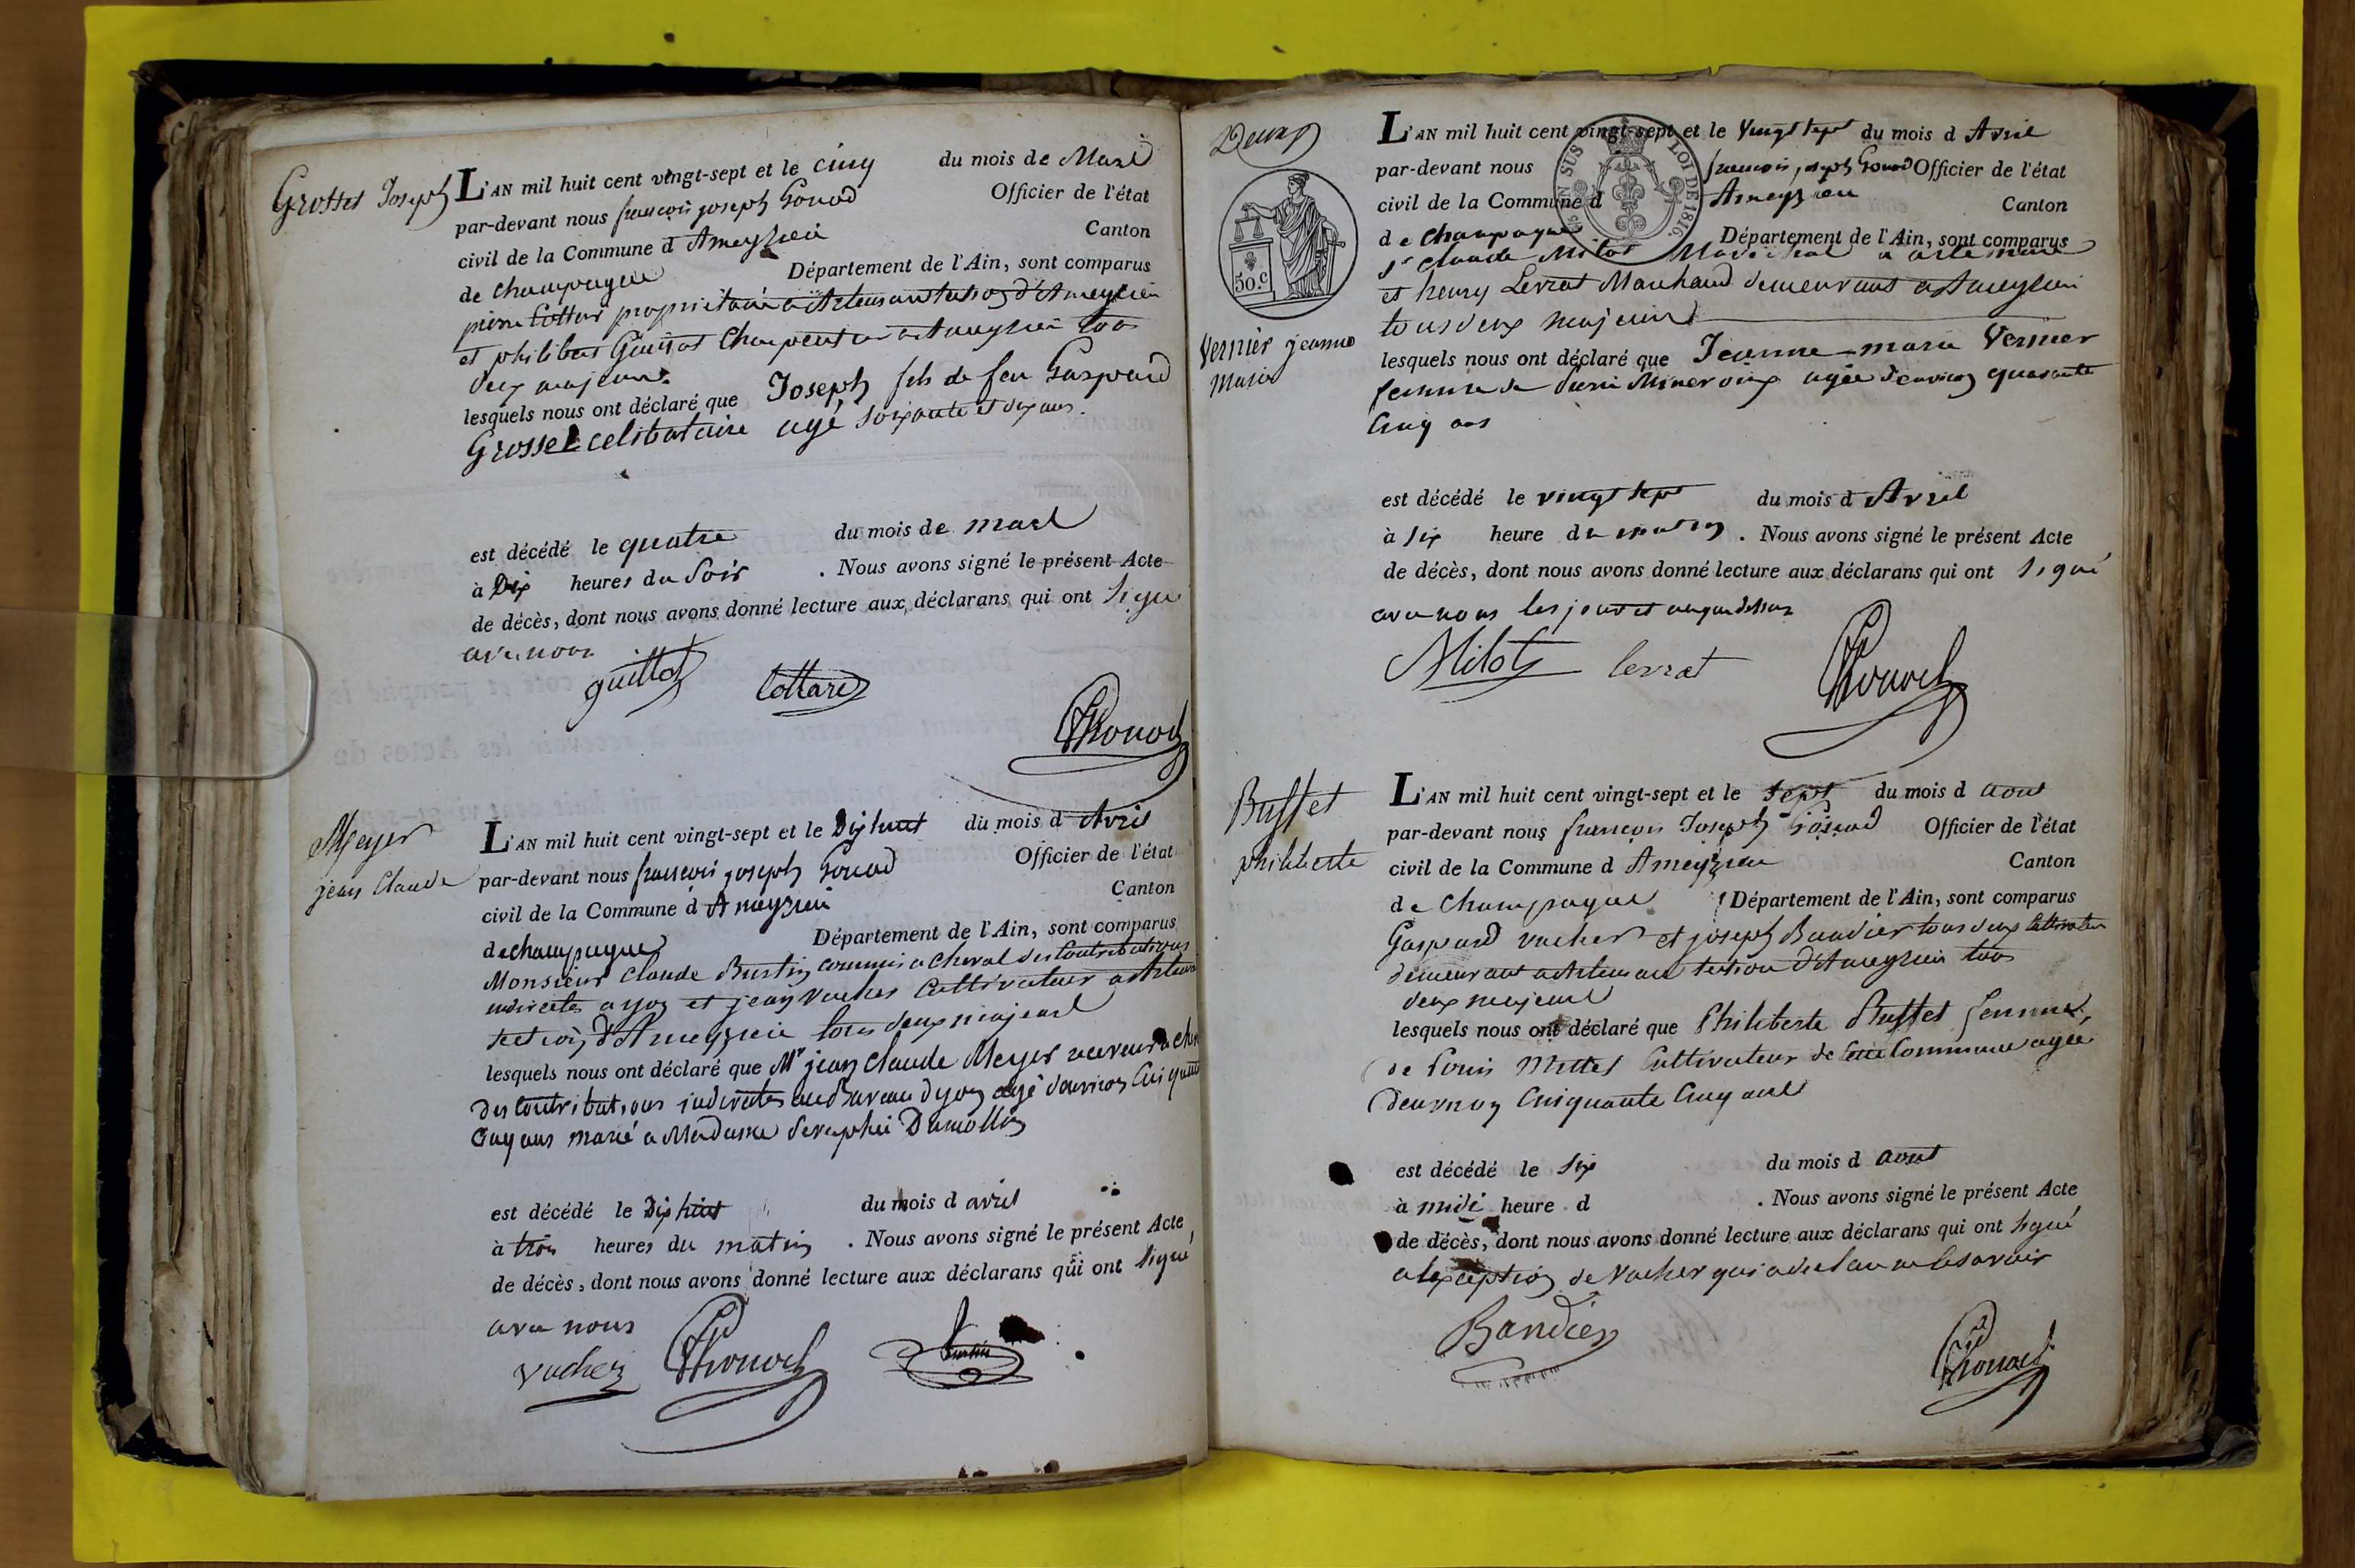 Grosset Joseph
L'AN mil huit cent vingt-sept et le cinq du mois de Mars
par-devant nous françois joseph Gonod Officier de l'état
civil de la Commune d Ameyzieu Canton
de Champagne Département de l'Ain, sont comparus
pierre Cottard proprietaire à Artemare section d'Ameyzieu
et philibert Guillot Charpentier a Ameyzieu tous
deux majeurs
lesquels nous ont déclaré que Joseph fils de feu Gaspard
Grosset celibataire agé soixante et dix ans.
est décédé le quatre du mois de mars
à Dix heures du Soir . Nous avons signé le présent Acte
de décès, dont nous avons donné lecture aux déclarans qui ont signé
avec nous
guillot Cottard Gonod
Meyer
jean Claude
L'AN mil huit cent vingt-sept et le Dix huit du mois d Avril
par-devant nous françois joseph Gonod Officier de l'état
civil de la Commune d Ameyzieu Canton
de champagne Département de l'Ain, sont comparus
Monsieur Claude Burtin commis a Cheval des Contributions
indirectes a yon et jean vucher Cultivateur a Artemare
section d'Ameyzieu tous deux majeurs
lesquels nous ont déclaré que Mr jean Claude Meyer receveur a
des Contributions indirectes au Bureau d'yon agé d'environ Cinquante
Cinq ans marié a Madame Seraphie Dumollin
est décédé le Dix huit du mois d avril
à trois heures du matin . Nous avons signé le présent Acte
de décès, dont nous avons donné lecture aux déclarans qui ont signé
avec nous
vucher Gonod Burtin
Deux
50. c
SUS LOI DE 1816.
Vernier jeanne
Marie
L'AN mil huit cent vingt-sept et le Vingt sept du mois d Avril
par-devant nous francois joseph Gonod Officier de l'état
civil de la Commune d Ameyzieu Canton
de Champagne Département de l'Ain, sont comparus
Sr Claude Milot Maréchal a artemare
et henry Levrat Marchand demeurant a Ameyzieu
tous deux majeurs
lesquels nous ont déclaré que Jeanne marie Vernier
femme de agée d'environ quarante
Cinq ans
est décédé le vingt sept du mois d Avril
à six heure du matin . Nous avons signé le présent Acte
de décès, dont nous avons donné lecture aux déclarans qui ont signé
avec nous les jour et an que dessus
Milot levrat Gonod
Buffet
philiberte
L'AN mil huit cent vingt-sept et le sept du mois d aout
par-devant nous françois Joseph Gonod Officier de l'état
civil de la Commune d Ameyzieu Canton
de Champagne Département de l'Ain, sont comparus
Gaspard vucher et joseph Bandier tous deux Cultivateurs
demeurant a Artemare section d'Ameyzieu tous
deux majeurs
lesquels nous ont déclaré que Philiberte Buffet femme
de Louis Millet Cultivateur de cette Commune agée
d'environ Cinquante Cinq ans
est décédé le six du mois d aout
à midi heure d . Nous avons signé le présent Acte
de décès, dont nous avons donné lecture aux déclarans qui ont signé
a lexception de vucher qui a declaré ne le savoir
Bandier Gonod